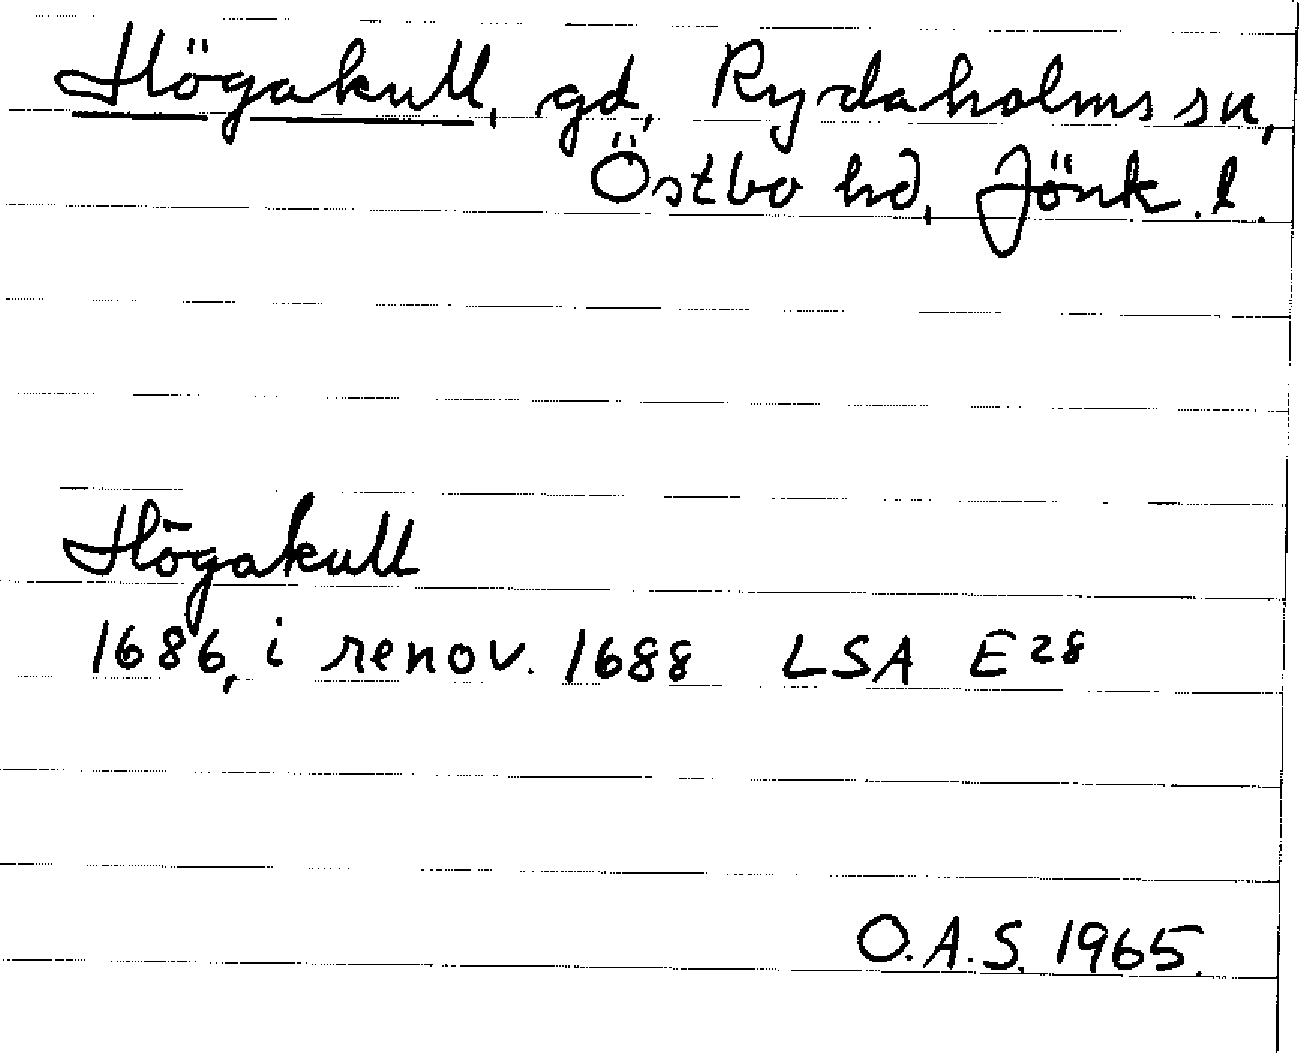 Högakull, gd, Rydaholms sn,
Östbo hd, Jönk. l.
Högakull
1686, i renov. 1688 LSA E 28
O.A.S. 1965.